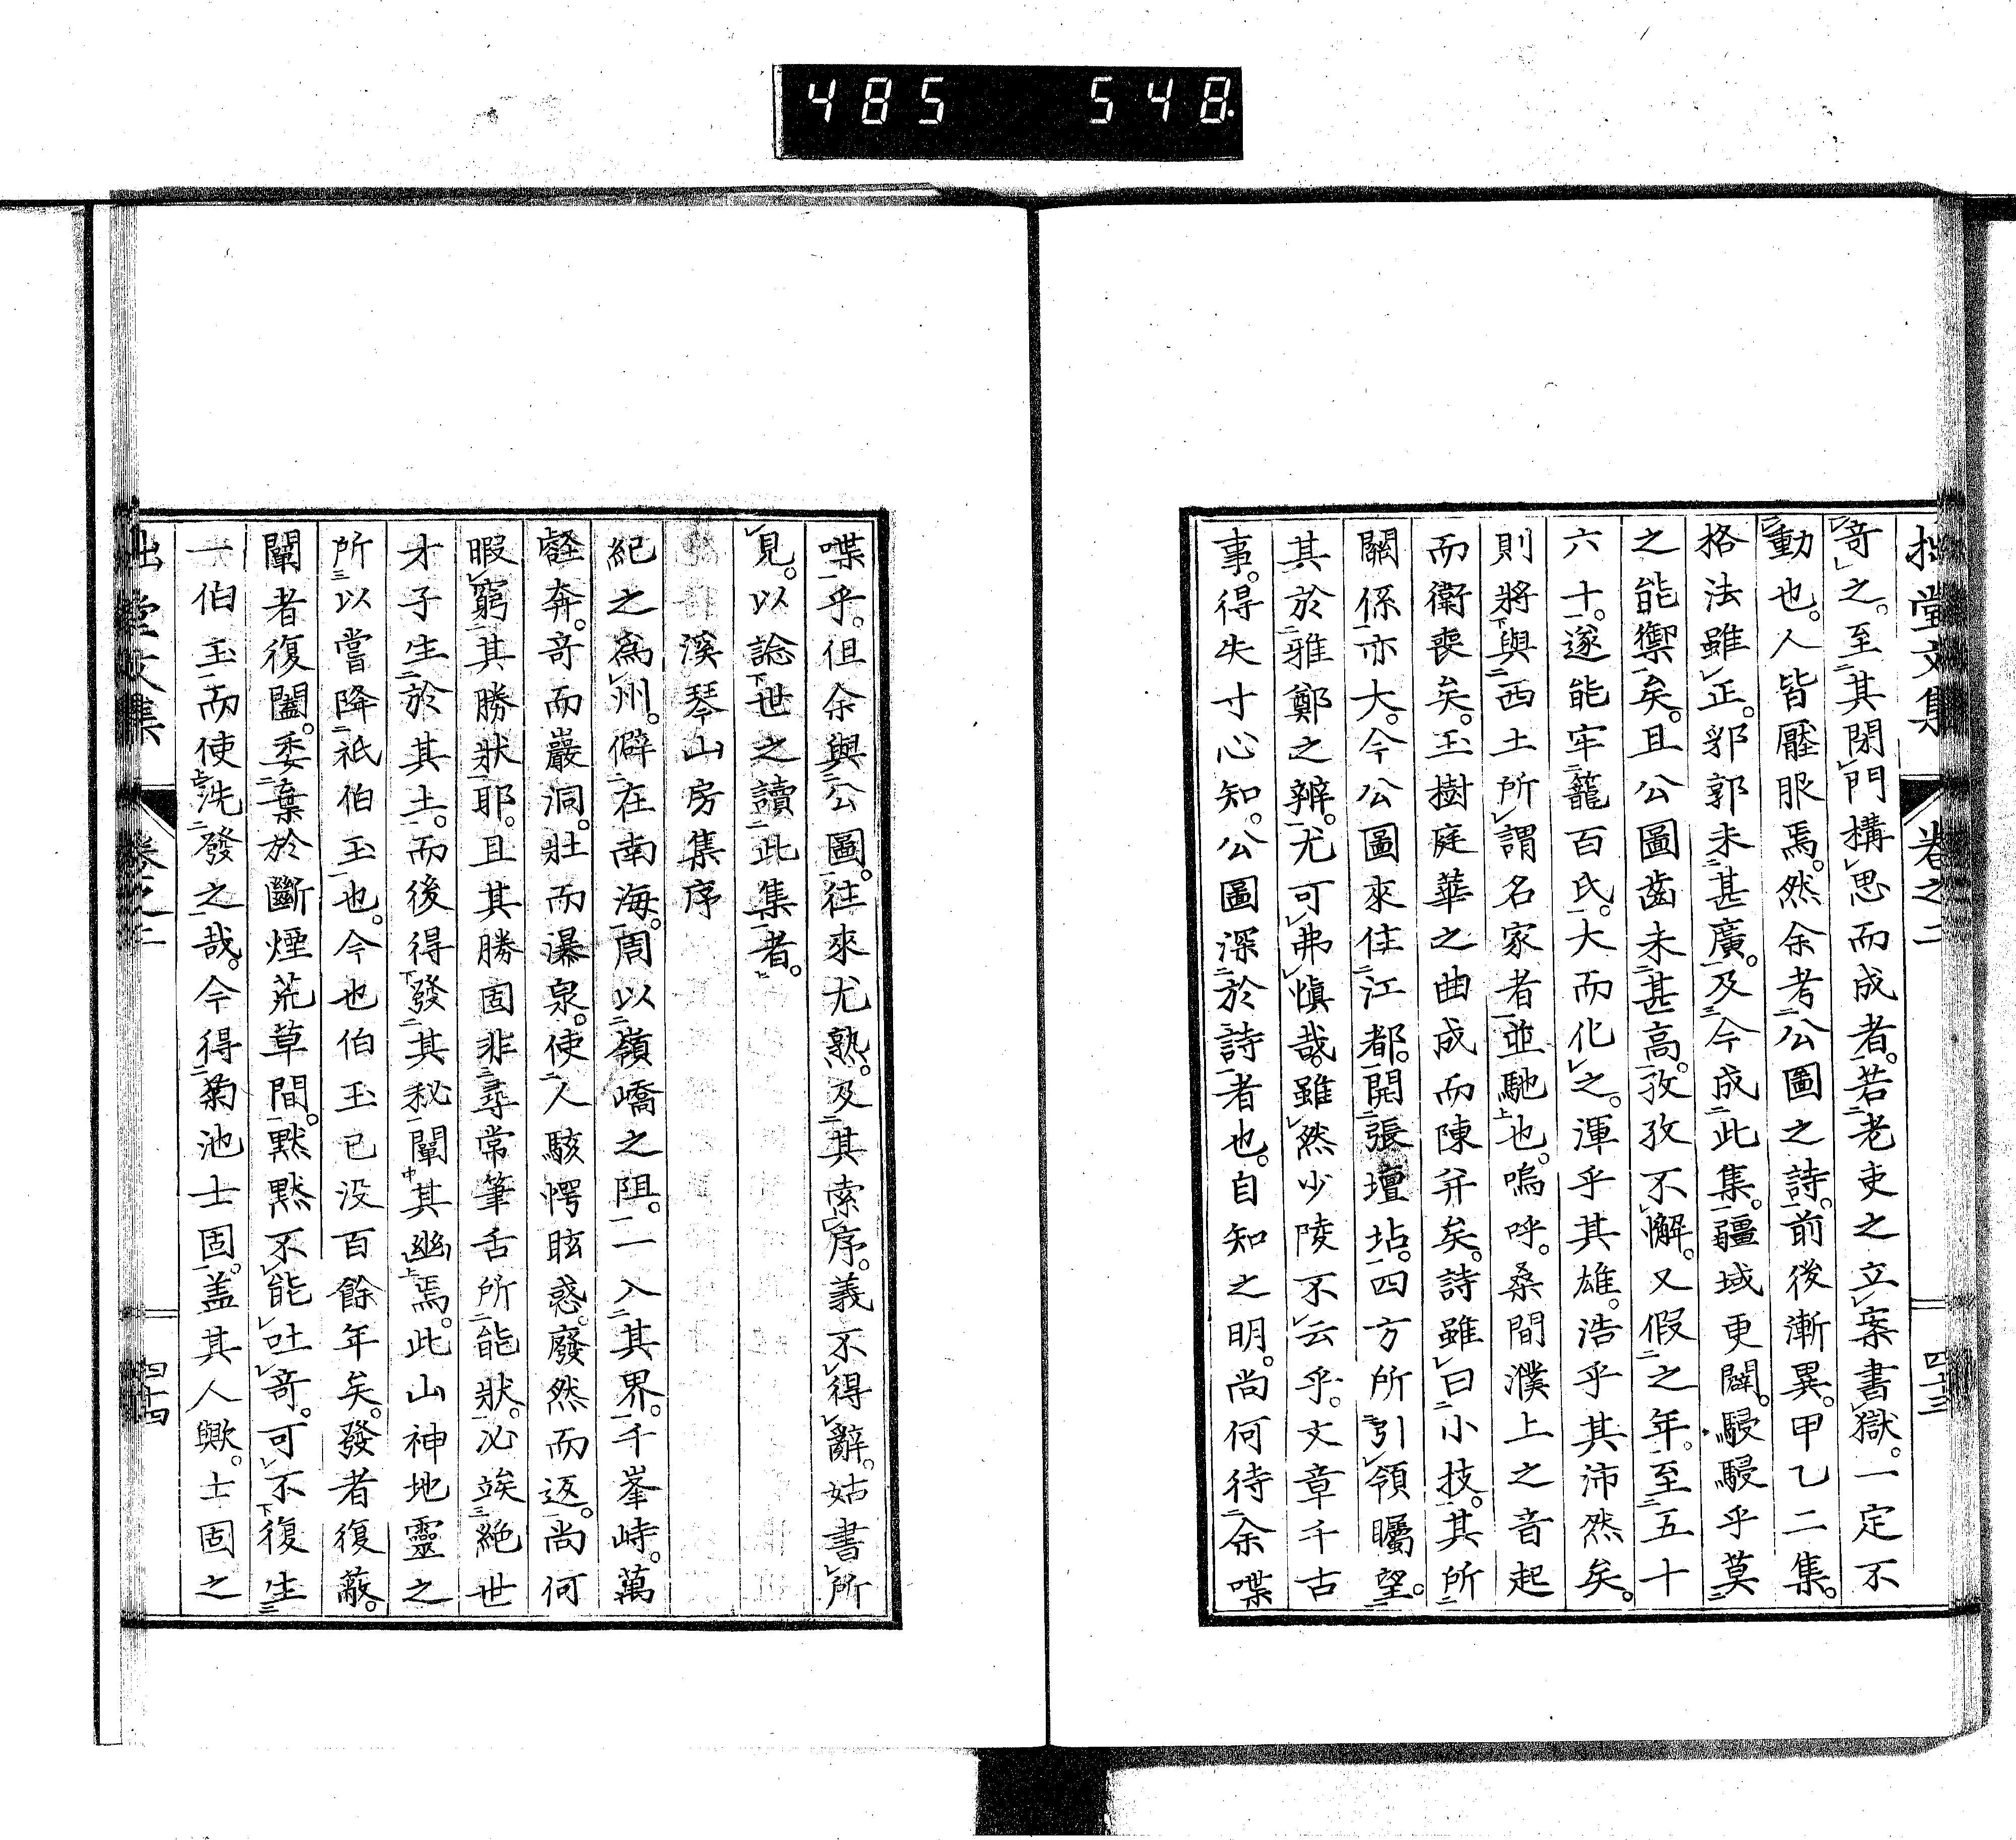 485 548.
拙堂文集 卷之二 四十三
奇之。至其閉門構思而成者。若老吏之立案書獄。一定不
動也。人皆壓服焉。然余考公圖之詩。前後漸異。甲乙二集。
格法雖正。郛郭未甚廣。及今成此集。疆域更闢。駸駸乎莫
之能禦矣。且公圖齒未甚高。孜孜不懈。又假之年。至五十
六十。遂能牢籠百氏。大而化之。渾乎其雄。浩乎其沛然矣。
則將與西土所謂名家者並馳也。嗚呼。桑間濮上之音起
而衛喪矣。玉樹庭華之曲成而陳幷矣。詩雖曰小技。其所
關係亦大。今公圖來住江都。開張壇坫。四方所引領矚望。
其於雅鄭之辨。尤可弗愼哉。雖然少陵不云乎。文章千古
事。得失寸心知。公圖深於詩者也。自知之明。尚何待余喋
喋乎。但余與公圖。往來尤熟。及其索序。義不得辭。姑書所
見。以諗世之讀此集者。
溪琴山房集序
紀之爲州。僻在南海。周以嶺嶠之阻。一入其界。千峯峙。萬
壑奔。奇而巖洞。壯而瀑泉。使人駭愕眩惑。廢然而返。尚何
暇窮其勝狀耶。且其勝固非尋常筆舌所能狀。必竢絶世
才子生於其土。而後得發其秘闡其幽焉。此山神地靈之
所以嘗降祇伯玉也。今也伯玉已没百餘年矣。發者復蔽。
闡者復闔。委棄於斷煙荒草間。黙黙不能吐奇。可不復生
一伯玉而使洗發之哉。今得菊池士固。盖其人歟。士固之
拙堂文集 卷之二 四十四